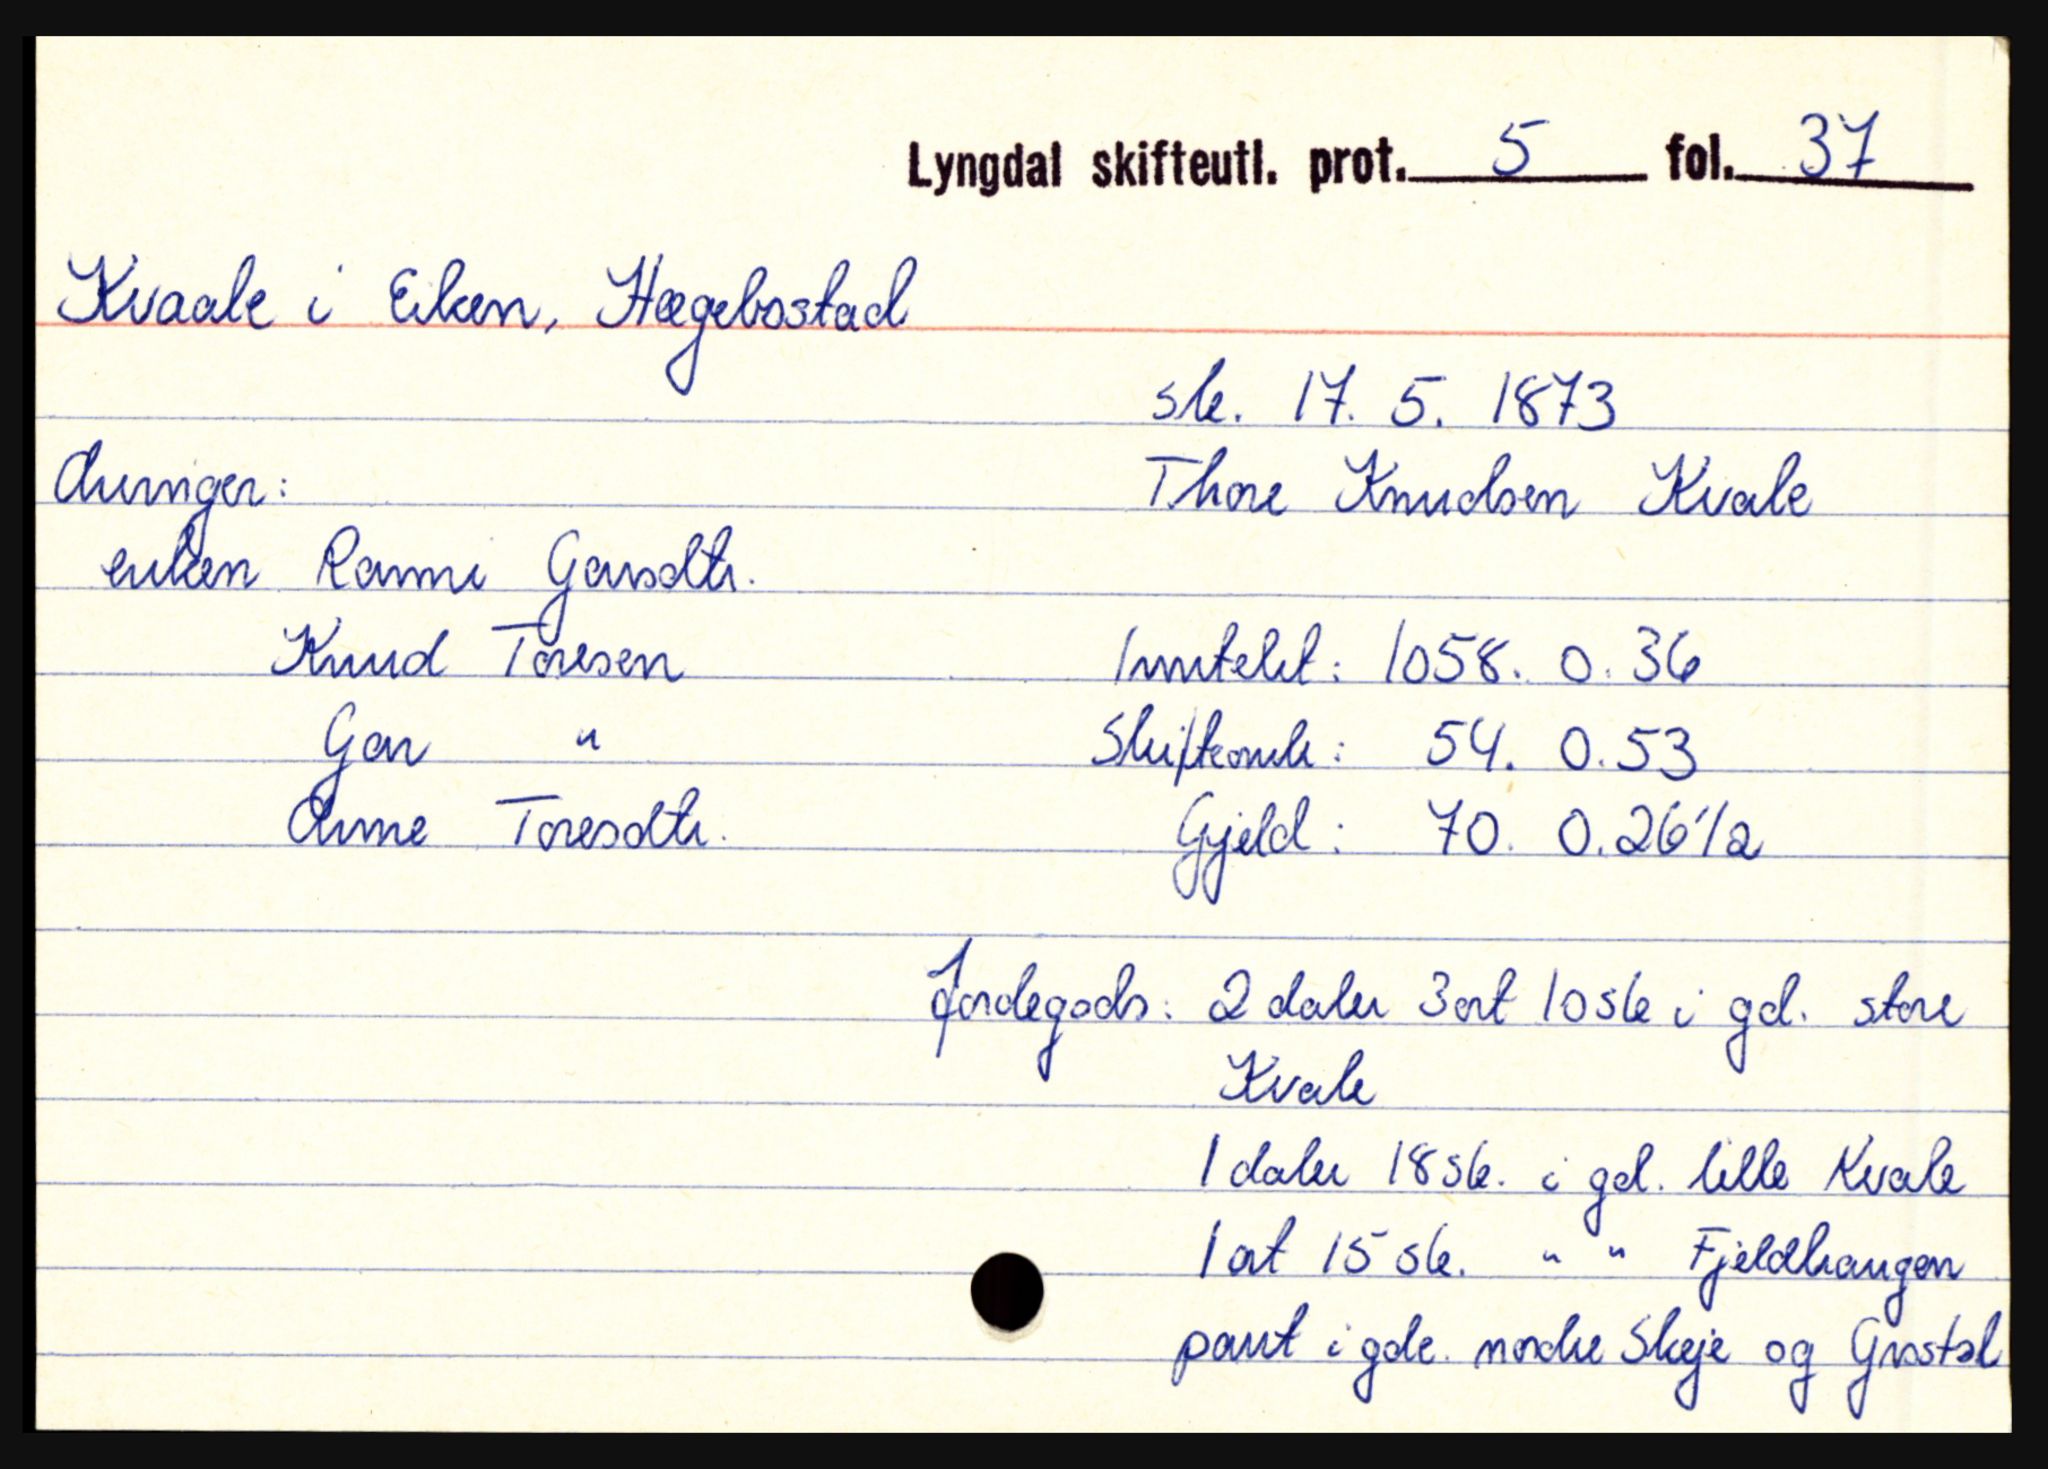 Lyngdal skifteutl. prot. 5 fol. 37
Kvaale i Eiken, Hægebostad
sk. 17. 5. 1873
Arvinger: Thore Knudsen Kvale
enken Ranni Garsdtr.
Knud Toresen Inntekt: 1058. 0. 36
Gar " Skifteomk: 54. 0. 53
Anne Toresdtr. Gjeld: 70. 0. 26 1/2
Jordegods: 2 daler 3 ort 10 sk i gd. store
Kvale
1 daler 18 sk. i gd. lille Kvale
1 ort 15 sk. " " Fjeldhaugen
pant i gde. nordre Skeje og